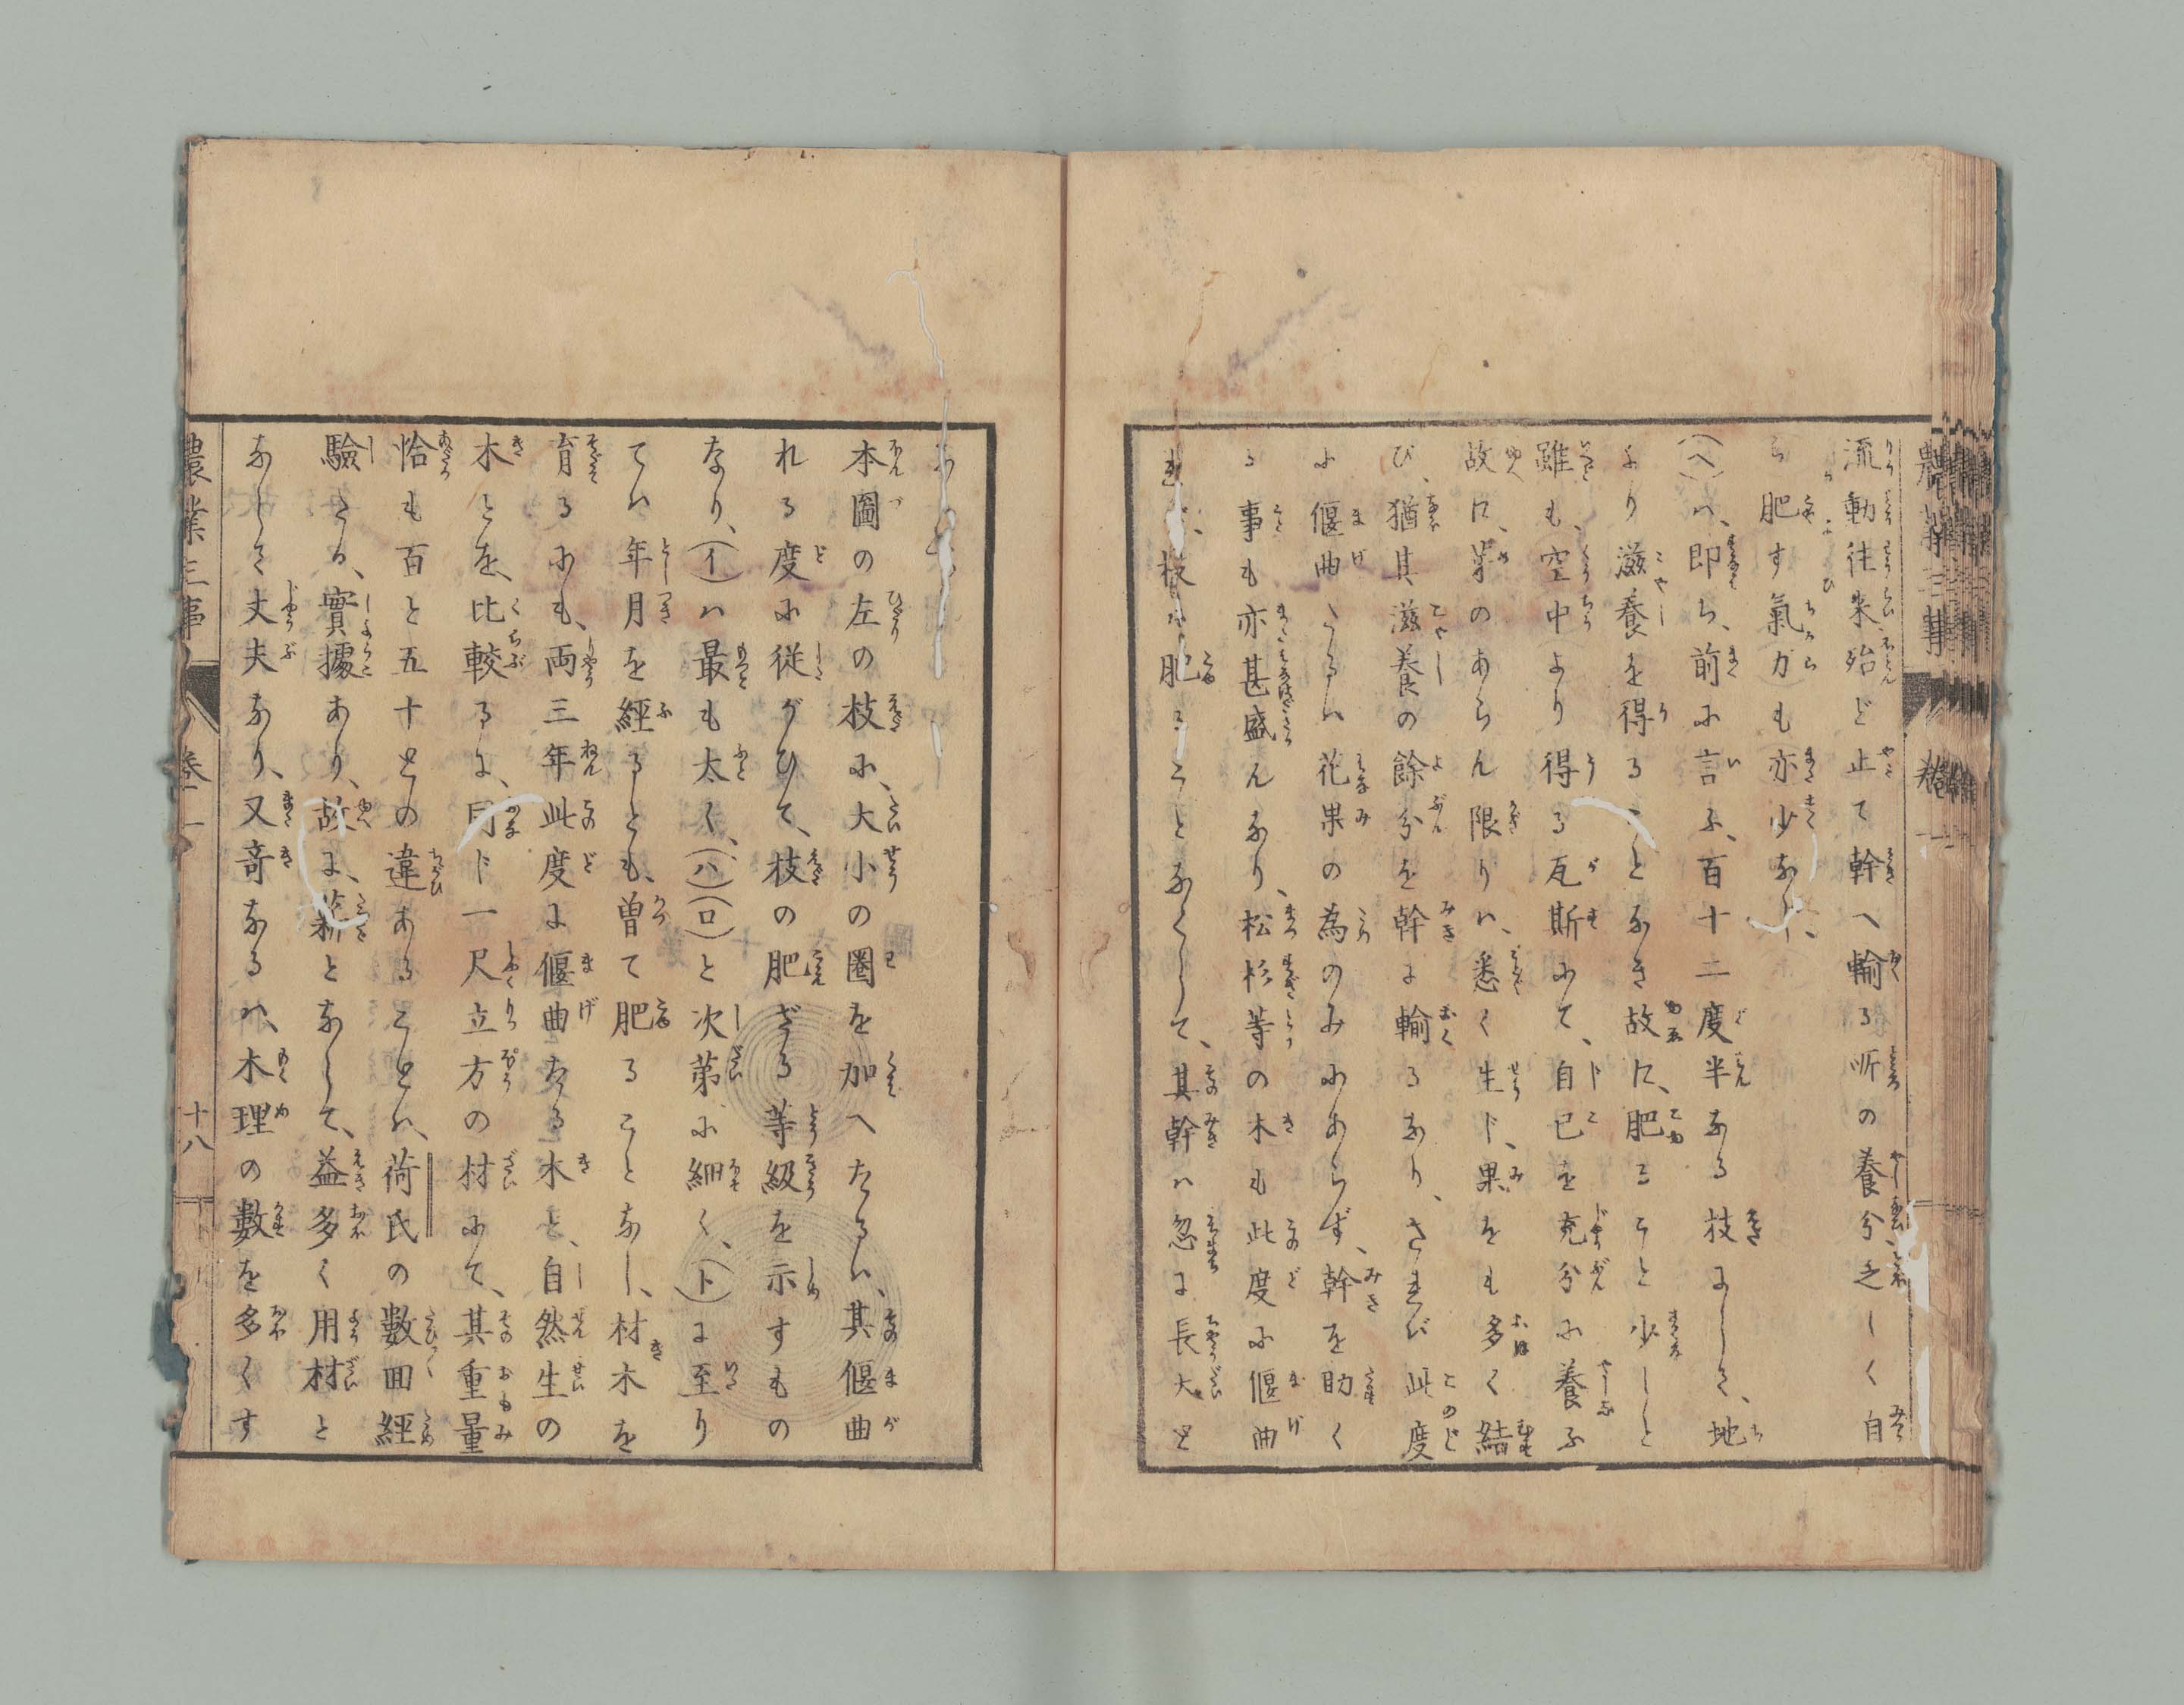 流動往来殆ど止て幹へ輸る所の養分乏しく自
ら肥す氣力も亦少なり、
(ヘ)ハ、即ち、前に言ふ、百十二度半なる枝にして、地
より滋養を得ることなき故に、肥ること少しと
雖も、空中より得る瓦斯にて、自己を充分に養ふ
故に、芽のあらん限りハ、悉く生ド、果をも多く結
び、猶其滋養の餘分を幹に輸るなり、されバ此度
に偃曲たるハ花果の為のみにあらず、幹を助く
る事も亦甚盛んなり、松杉等の木も此度に偃曲
肥ることなくして、其幹ハ忽に長大と
本圖の左の枝に、大小の圏を加へたるハ、其偃曲
れる度に従がひて、枝の肥ざる等級を示すもの
なり、(イ)ハ最も太く、(ハ)(ロ)と次第に細く、(ト)に至り
てハ年月を經るとも、曽て肥ることなし、材木を
育るにも、両三年此度に偃曲たる木と、自然生の
木とを、比較るに、同ド一尺立方の材にて、其重量
恰も百と五十との違あることハ、荷氏の數囬經
驗たる、實據あり、故に、薪となして、益多く用材と
なして丈夫なり、又竒なるハ、木理の數を多くす
農業三事
巻一
十八